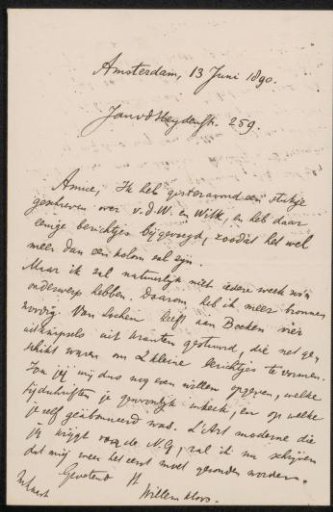 Amsterdam, 13 Juni 1890.
Jan v d Heydenstr. 259.
Amice, Ik heb gisteravond een stukje
geschreven over v.d.W. en Witk, en heb daar
eenige berichtjes bijgevoegd, zoodat het wel
meer dan een kolom zal zijn.
Maar ik zal natuurlijk niet iedere week zoo'n
onderwerp hebben. Daarom heb ik meer bronnen
noodig. Van Looy heeft aan Boeken vier
uitknipsels uit kranten gestuurd, die net ge-
schikt waren om 2 kleine berichtjes te vormen.
Zou jij mij dus nog even willen opgeven, welke
tijdschriften je gewoonlijk inkeek, en op welke
je zelf geabonneerd was. L'Art moderne die
jij krijgt voor de N.G. zal ik nu schrijven
dat mij weer het eerst moet gezonden worden.
Gegroet
Willem Kloos.